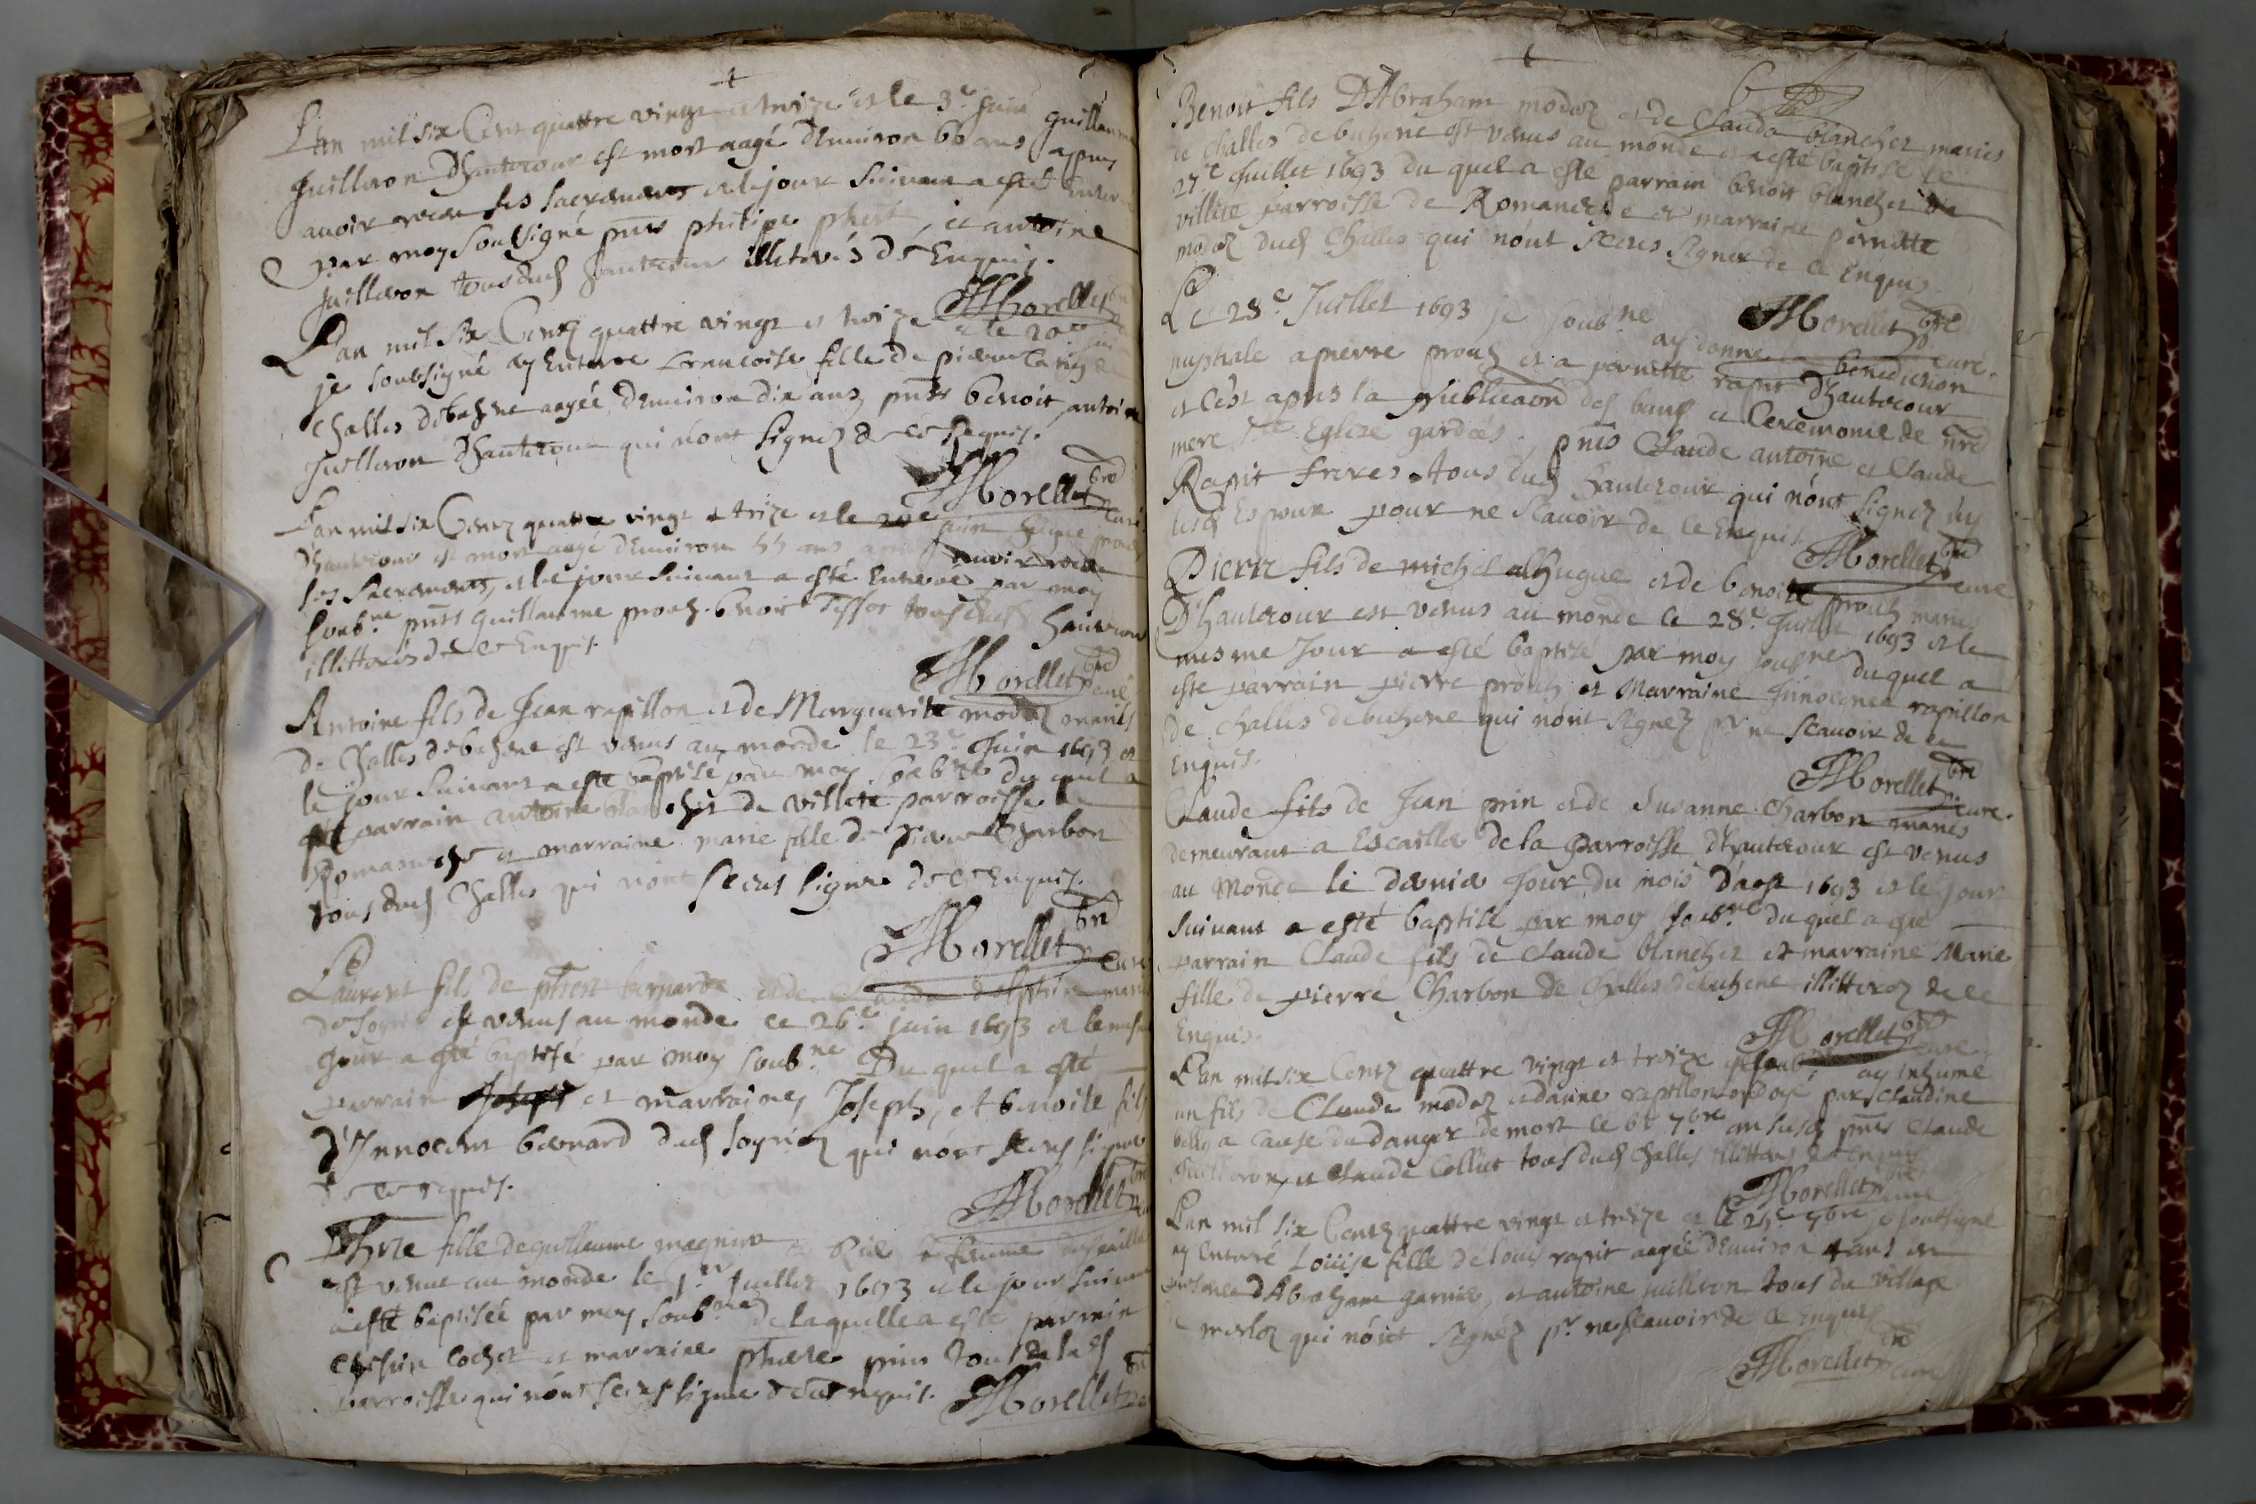 L'an mil six Cent quattre vingt et treize et le 3e Juin guillaume
Juilleron d'hautecour est mort aagé d'Environ 66 ans apres
avoir receu ses sacrements et le jour suivant a esté Enterré
par moy soubsigné pnts philipe phert, et antoine
Juilleron tous dud hautecour illeterés de Enquis.
Morellet
L'an mil six Centz quattre vingt et treize et le 20e
je soubsigné ay Enterré Francoise fille de pierre
Challes debuhene aagée d'Environ dix ans, pnts benoit, antoine
Juilleron d'hautecour qui n'ont signez de ce Requis.
Morellet
L'an mil six Centz quattre vingt et treize et le 20e juin
d'hautecour est mort aagé d'Environ 55 ans apres avoir receu
ses sacrements, et le jour suivant a esté Enterré par moy
soubne pnts guillaume prouz benoit Tissot tous dud hautecour
illitterés de ce Enquis.
Morellet curé
Antoine fils de Jean rapillon et de Marguerite modoz mariés
de Challes debuhene est venus au monde le 23e Juin 1693 et
le jour suivant a esté baptisé par moy soubne du quel a
esté parrain antoine blanchet de villete parroisse de
Romaneche et marraine marie fille de pierre Charbon
tous dud Challes qui n'ont sceus signer de ce Enquis.
Morellet
Laurent fils de phert bernard et de mariés
de soyriez est venus au monde le 26e juin 1693 et le mesme
Jour a esté baptisé par moy soubne Du quel a esté
parrain et marraine, Joseph, et benoite fils
d'Innocent bernard dud soyriez qui n'ont sceus signer
de ce requis.
Morellet
fille de guillaume magnin et sa femme
est venue au monde le 1er Juillet 1693 et le jour suivant
a esté baptisée par moy soubne de laquelle a esté parrain
cochet et marraine pherte pin tous de lad
parroisse qui n'ont sceus signer de ce requis. Morellet
6
Benoit fils D'Abraham modoz et de Clauda blanchet mariés
de Challes debuhene est venus au monde et a esté baptisé le
27e Juillet 1693 du quel a esté parrain benoit blanchet de
villete parroisse de Romaneche et marraine pernette
modoz dud Challes qui n'ont sceus signer de ce Enquis.
Morellet curé
Le 28e Juillet 1693 je soubne ay donné la benediction
nuptiale a pierre prouz et a pernette rapit d'hautecour
et c'est apres la publication des bans et Ceremonie de nre
mere ste Eglize gardées. pnts Claude antoine et Claude
Rapit freres tous dud hautecour qui n'ont signez ny
lesd Espoux pour ne scavoir de ce Enquis.
Morellet curé
Pierre fils de michel alhugue et de benoite prouz mariés
D'hautecour est venus au monde le 28e Juillet 1693 et le
mesme Jour a esté baptizé par moy soubne du quel a
este parrain pierre prouz et Marraine Innocence rapillon
de Challes debuhene qui n'ont signez pr ne scavoir de ce
Enquis.
Morellet curé
Claude fils de Jean prin et de Susanne Charbon mariés
demeurant a Escaille de la parroisse d'hautecour est venus
au Monde le dernier Jour du mois d'aost 1693 et le Jour
suivant a esté baptisé par moy soubne du quel a esté
parrain Claude fils de Claude blanchet et marraine Marie
fille de pierre Charbon de Challes debuhene illitterez de ce
Enquis.
Morellet curé
L'an mil six Centz quattre vingt et treize je soubne ay inhumé
un fils de Claude modoz et d'anne rapillon ondoyé par Claudine
belly a cause du danger de mort le 6e 7bre an susd pnts Claude
Juilleron, et Claude Colliet tous dud Challes illitterés de ce enquis
Morellet curé
L'an mil six Centz quattre vingt et treize et le 25e 7bre je soubsigné
ay Enterré Loüise fille de louis rapit aagée d'Environ 4 ans en
presence d'Abraham garnier, et antoine juilleron tous du village
de merloz qui n'ont signéz pr ne scavoir de ce enquis
Morellet curé